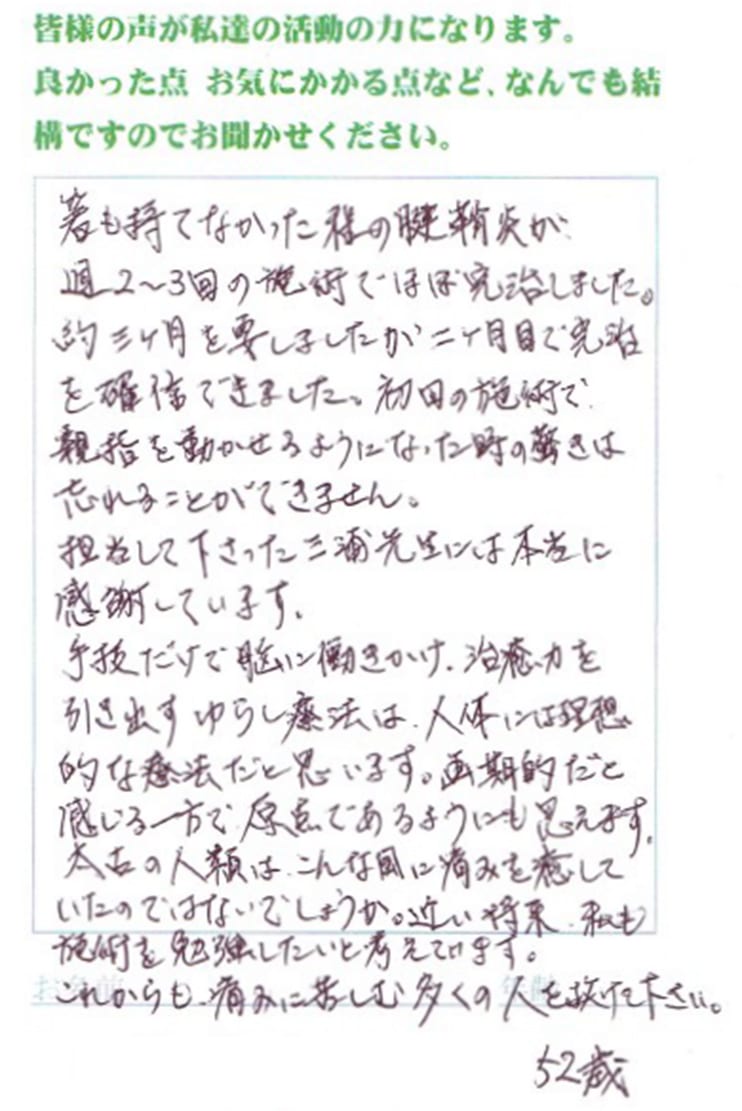 皆様の声が私達の活動の力になります。
良かった点 お気にかかる点など、なんでも結
構ですのでお聞かせください。
箸も持てなかった程の腱鞘炎が、
週2〜3回の施術でほぼ完治しました。
約三ヶ月を要しましたが二ヶ月目で完治
を確信できました。初回の施術で、
親指を動かせるようになった時の驚きは
忘れることができません。
担当して下さった三浦先生には本当に
感謝しています。
手技だけで脳に働きかけ、治癒力を
引き出すゆらし療法は、人体には理想
的な療法だと思います。画期的だと
感じる一方で、原点であるようにも思えます。
太古の人類は、こんな風に痛みを癒して
いたのではないでしょうか。近い将来、私も
施術を勉強したいと考えています。
お名前 年齢
これからも、痛みに苦しむ多くの人を救けて下さい。
52歳